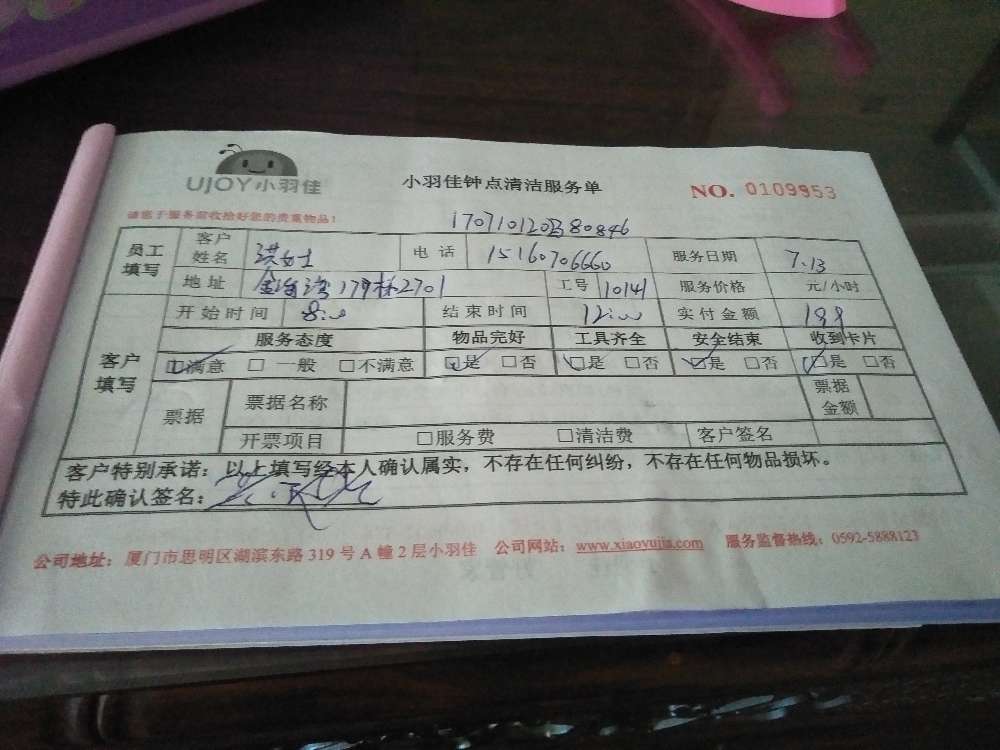 UJOY小羽佳
小羽佳钟点清洁服务单
NO. 0109953
请您于服务前收拾好您的贵重物品!
员工填写 客户姓名 洪女士 电话 15160706660 服务日期 7.13
地址 179栋2701 工号 10141 服务价格 元/小时
客户填写 开始时间 8:00 结束时间 12:00 实付金额 199
服务态度 物品完好 工具齐全 安全结束 收到卡片
☑满意 □一般 □不满意 ☑是 □否 ☑是 □否 ☑是 □否 ☑是 □否
票据 票据名称 票据金额
开票项目 □服务费 □清洁费 客户签名
客户特别承诺：以上填写经本人确认属实，不存在任何纠纷，不存在任何物品损坏。
特此确认签名：
公司地址：厦门市思明区湖滨东路 319 号 A 幢 2 层小羽佳 公司网站：www.xiaoyujia.com 服务监督热线：0592-5888123